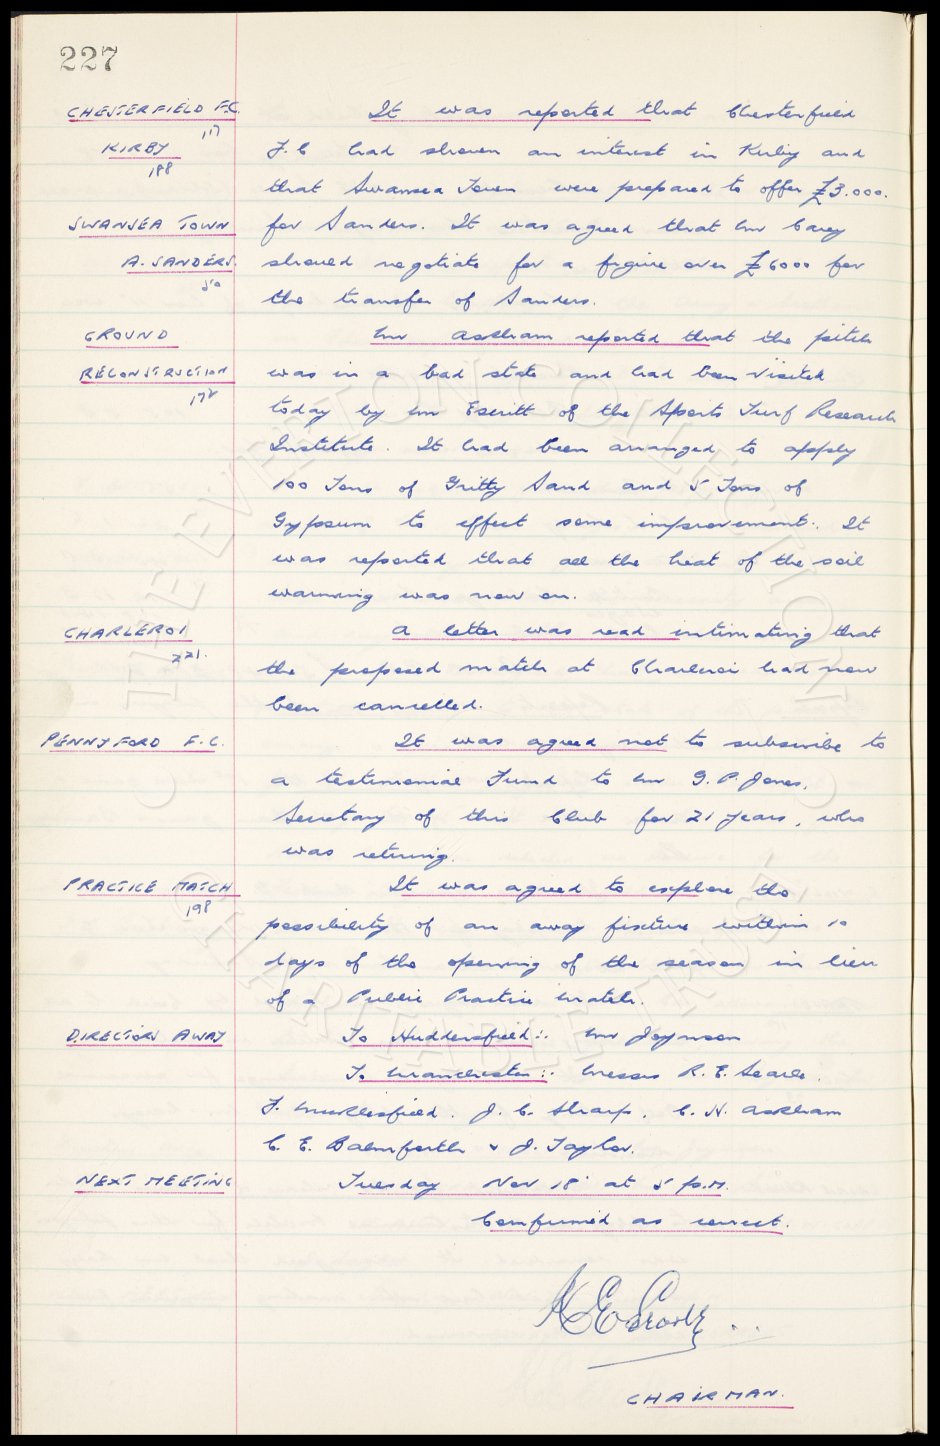 227
CHESTERFIELD F.C. It was reported that Chesterfield
117
KIRBY F.C had shown an interest in Kirby and
188
that Swansea Town were prepared to offer £3.000.
SWANSEA TOWN for Sanders. It was agreed that Mr Carey
A. SANDERS. should negotiate for a figure over £6000 for
50
the transfer of Sanders.
GROUND Mr Askham reported that the pitch
RECONSTRUCTION was in a bad state and had been visited
172
today by Mr Escritt of the Sports Turf Research
Institute. It had been arranged to apply
100 Tons of Gritty Sand and 5 Tons of
Gypsum to effect some improvement. It
was reported that all the heat of the soil
warming was now on.
CHARLEROI A letter was read intimating that
221.
the proposed match at Charleroi had now
been cancelled.
PENNYFORD F.C. It was agreed not to subscribe to
a testimonial Fund to Mr G. P. Jones,
Secretary of this Club for 21 years, who
was retiring.
PRACTICE MATCH It was agreed to explore the
198
possibility of an away fixture within 10
days of the opening of the season in lieu
of a Public Practice Match.
DIRECTORS AWAY To Huddersfield:. Mr Joynson
To Manchester:. Messrs R. E. Searle.
F. Micklesfield. J. C. Sharp. C. H. Askham
C. E. Balmforth & J. Taylor.
NEXT MEETING Tuesday Nov 18 at 5 p.m.
Confirmed as correct.
CHAIRMAN.
THE EVERTON COLLECTION
CHARITABLE TRUST